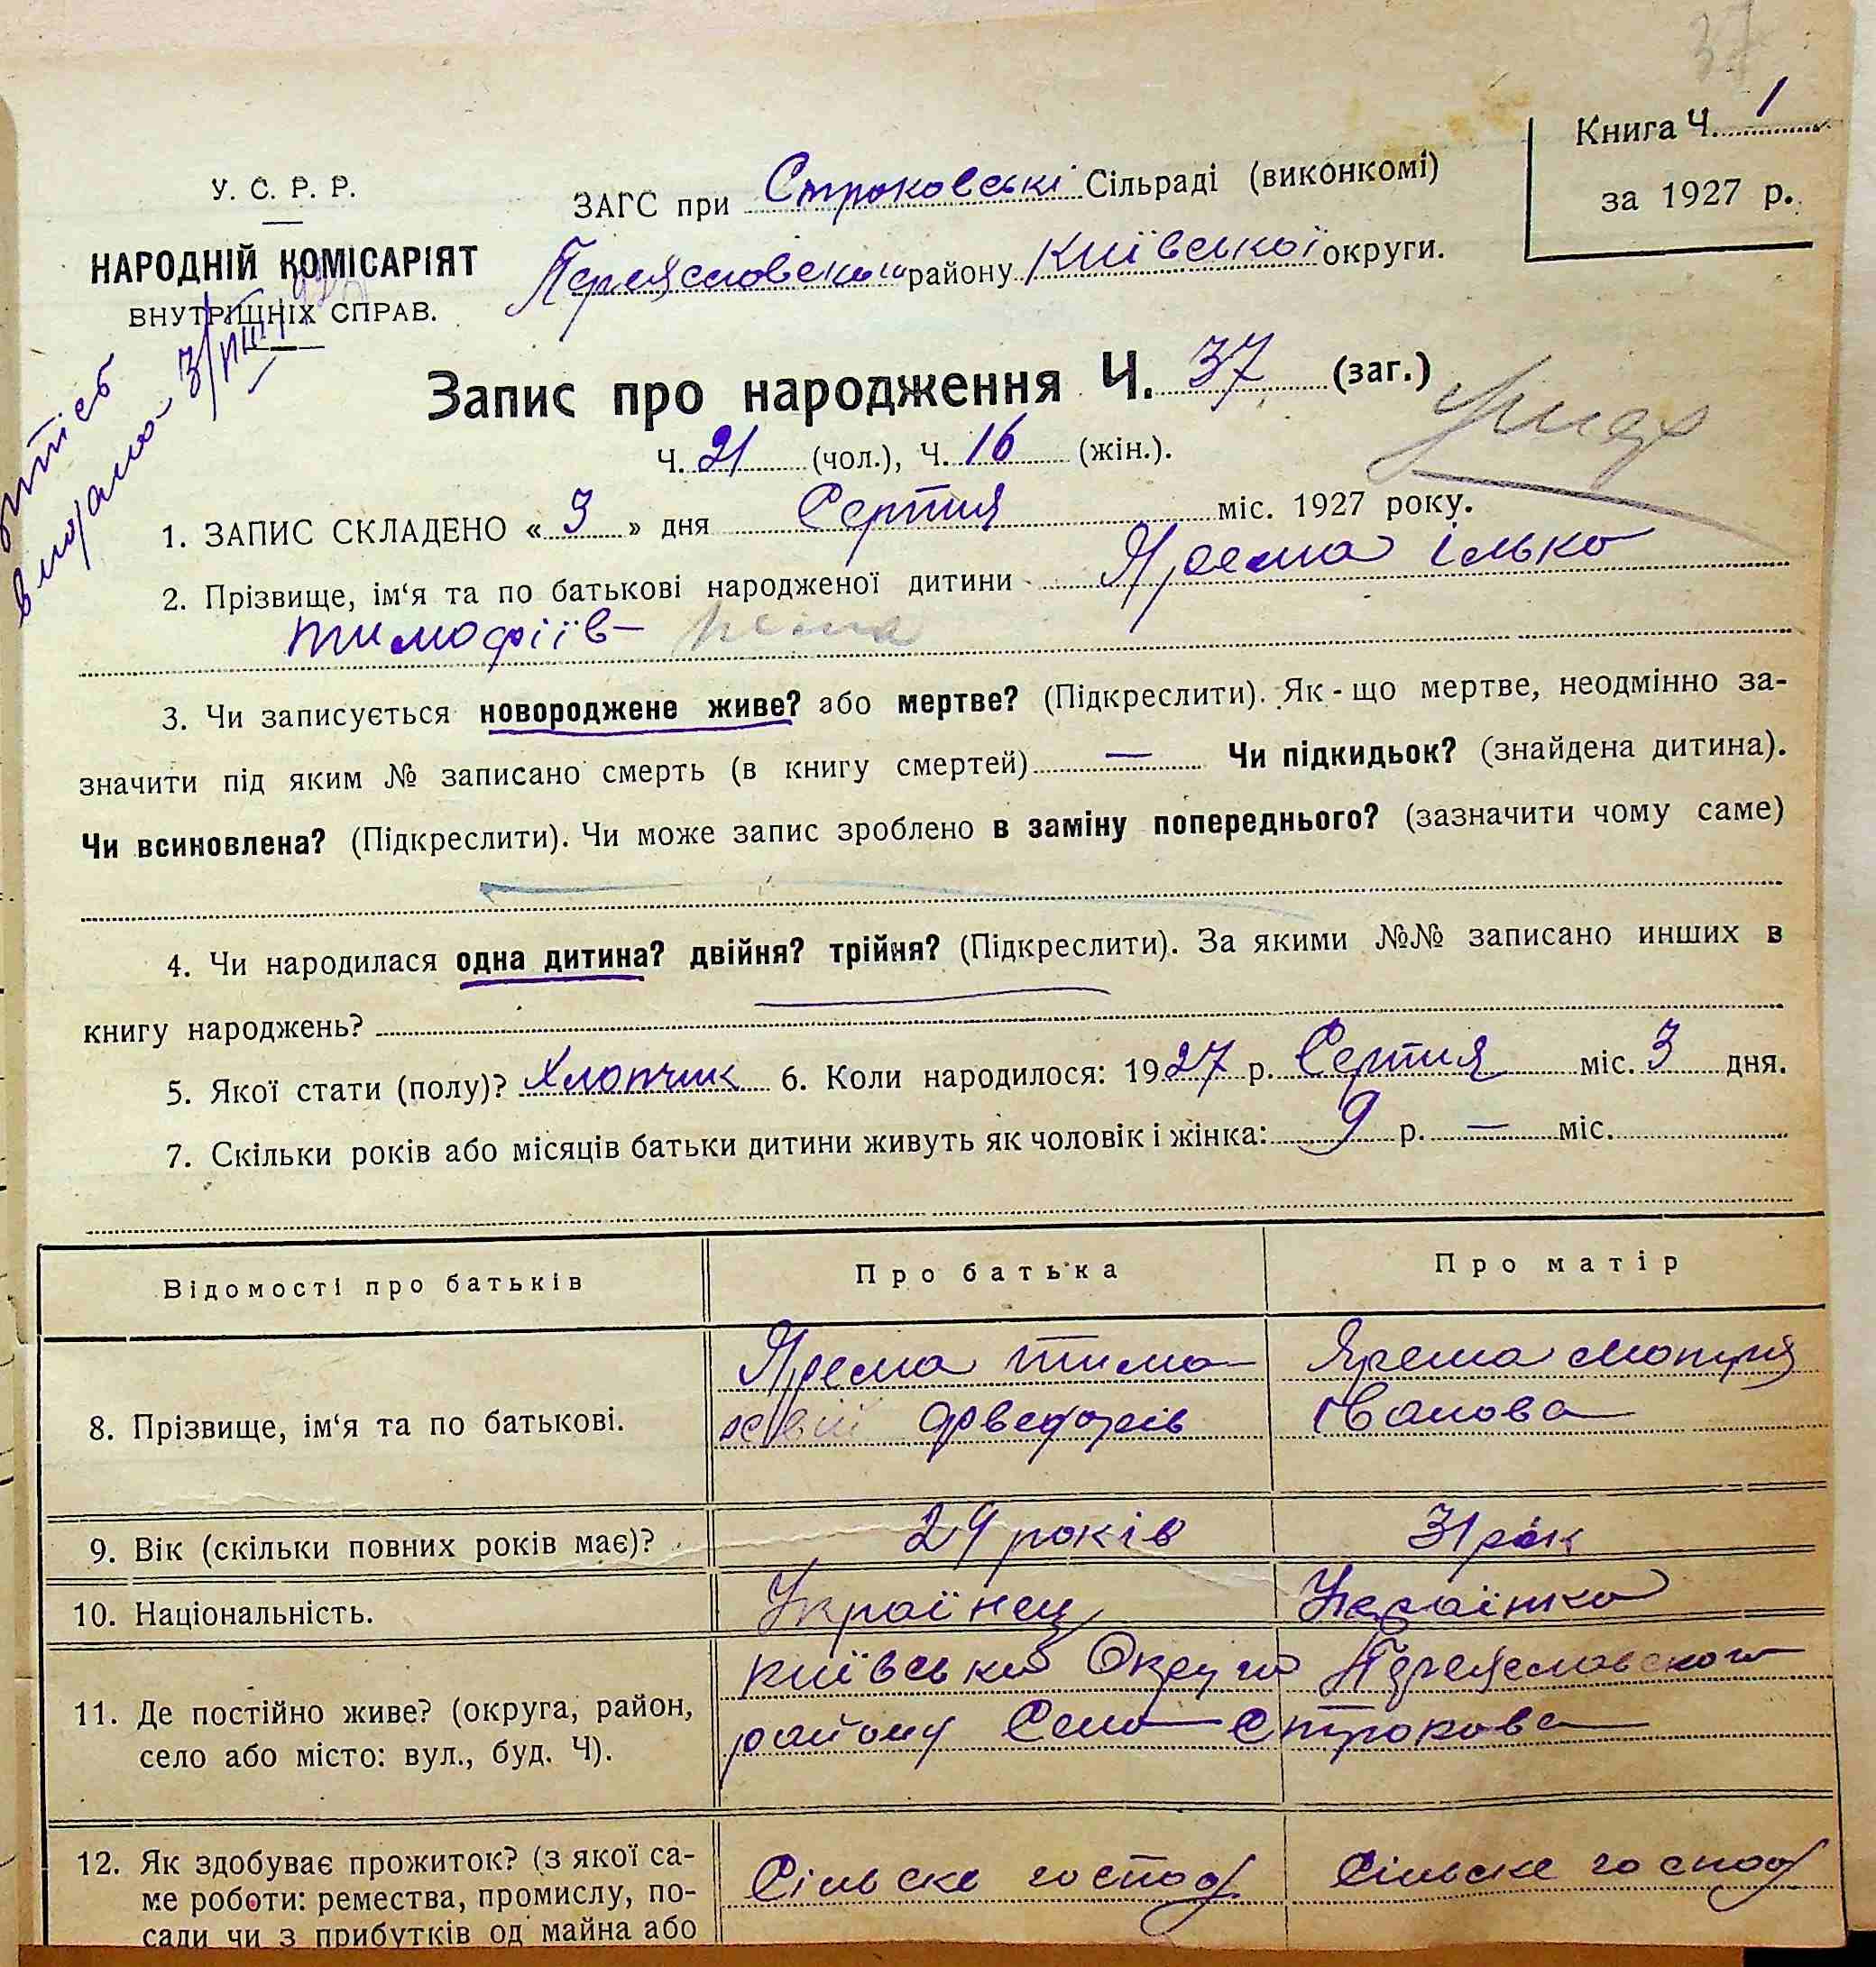 37
Книга Ч. 1
за 1927 р.
У. С. Р. Р.
НАРОДНІЙ КОМІСАРІЯТ
ВНУТРІШНІХ СПРАВ.
ЗАГС при Строковські Сільраді (виконкомі)
Переяславського району Київської округи.
Запис про народження Ч. 37 (заг.)
Ч. 21 (чол.), Ч. 16 (жін.).
1. ЗАПИС СКЛАДЕНО « 3 » дня Серпня міс. 1927 року.
2. Прізвище, ім‘я та по батькові народженої дитини Ярема Ілько
тимофіїв
3. Чи записується новороджене живе? або мертве? (Підкреслити). Як-що мертве, неодмінно за-
значити під яким № записано смерть (в книгу смертей) — Чи підкидьок? (знайдена дитина).
Чи всиновлена? (Підкреслити). Чи може запис зроблено в заміну попереднього? (зазначити чому саме)
4. Чи народилася одна дитина? двійня? трійня? (Підкреслити). За якими №№ записано инших в
книгу народжень?
5. Якої стати (полу)? Хлопчик 6. Коли народилося: 1927 р. Серпня міс. 3 дня.
7. Скільки років або місяців батьки дитини живуть як чоловік і жінка: 9 р. — міс.
Відомості про батьків Про батька Про матір
8. Прізвище, ім‘я та по батькові. Ярема тимо Ярема
Іванова
9. Вік (скільки повних років має)? 29 років 31 рік
10. Національність. Українец Українка
11. Де постійно живе? (округа, район,
село або місто: вул., буд. Ч).
Київська Округа Переяславского
району Село Строкова
12. Як здобуває прожиток? (з якої са-
ме роботи: ремества, промислу, по-
сади чи з прибутків од майна або
Сільске господ Сільске господ